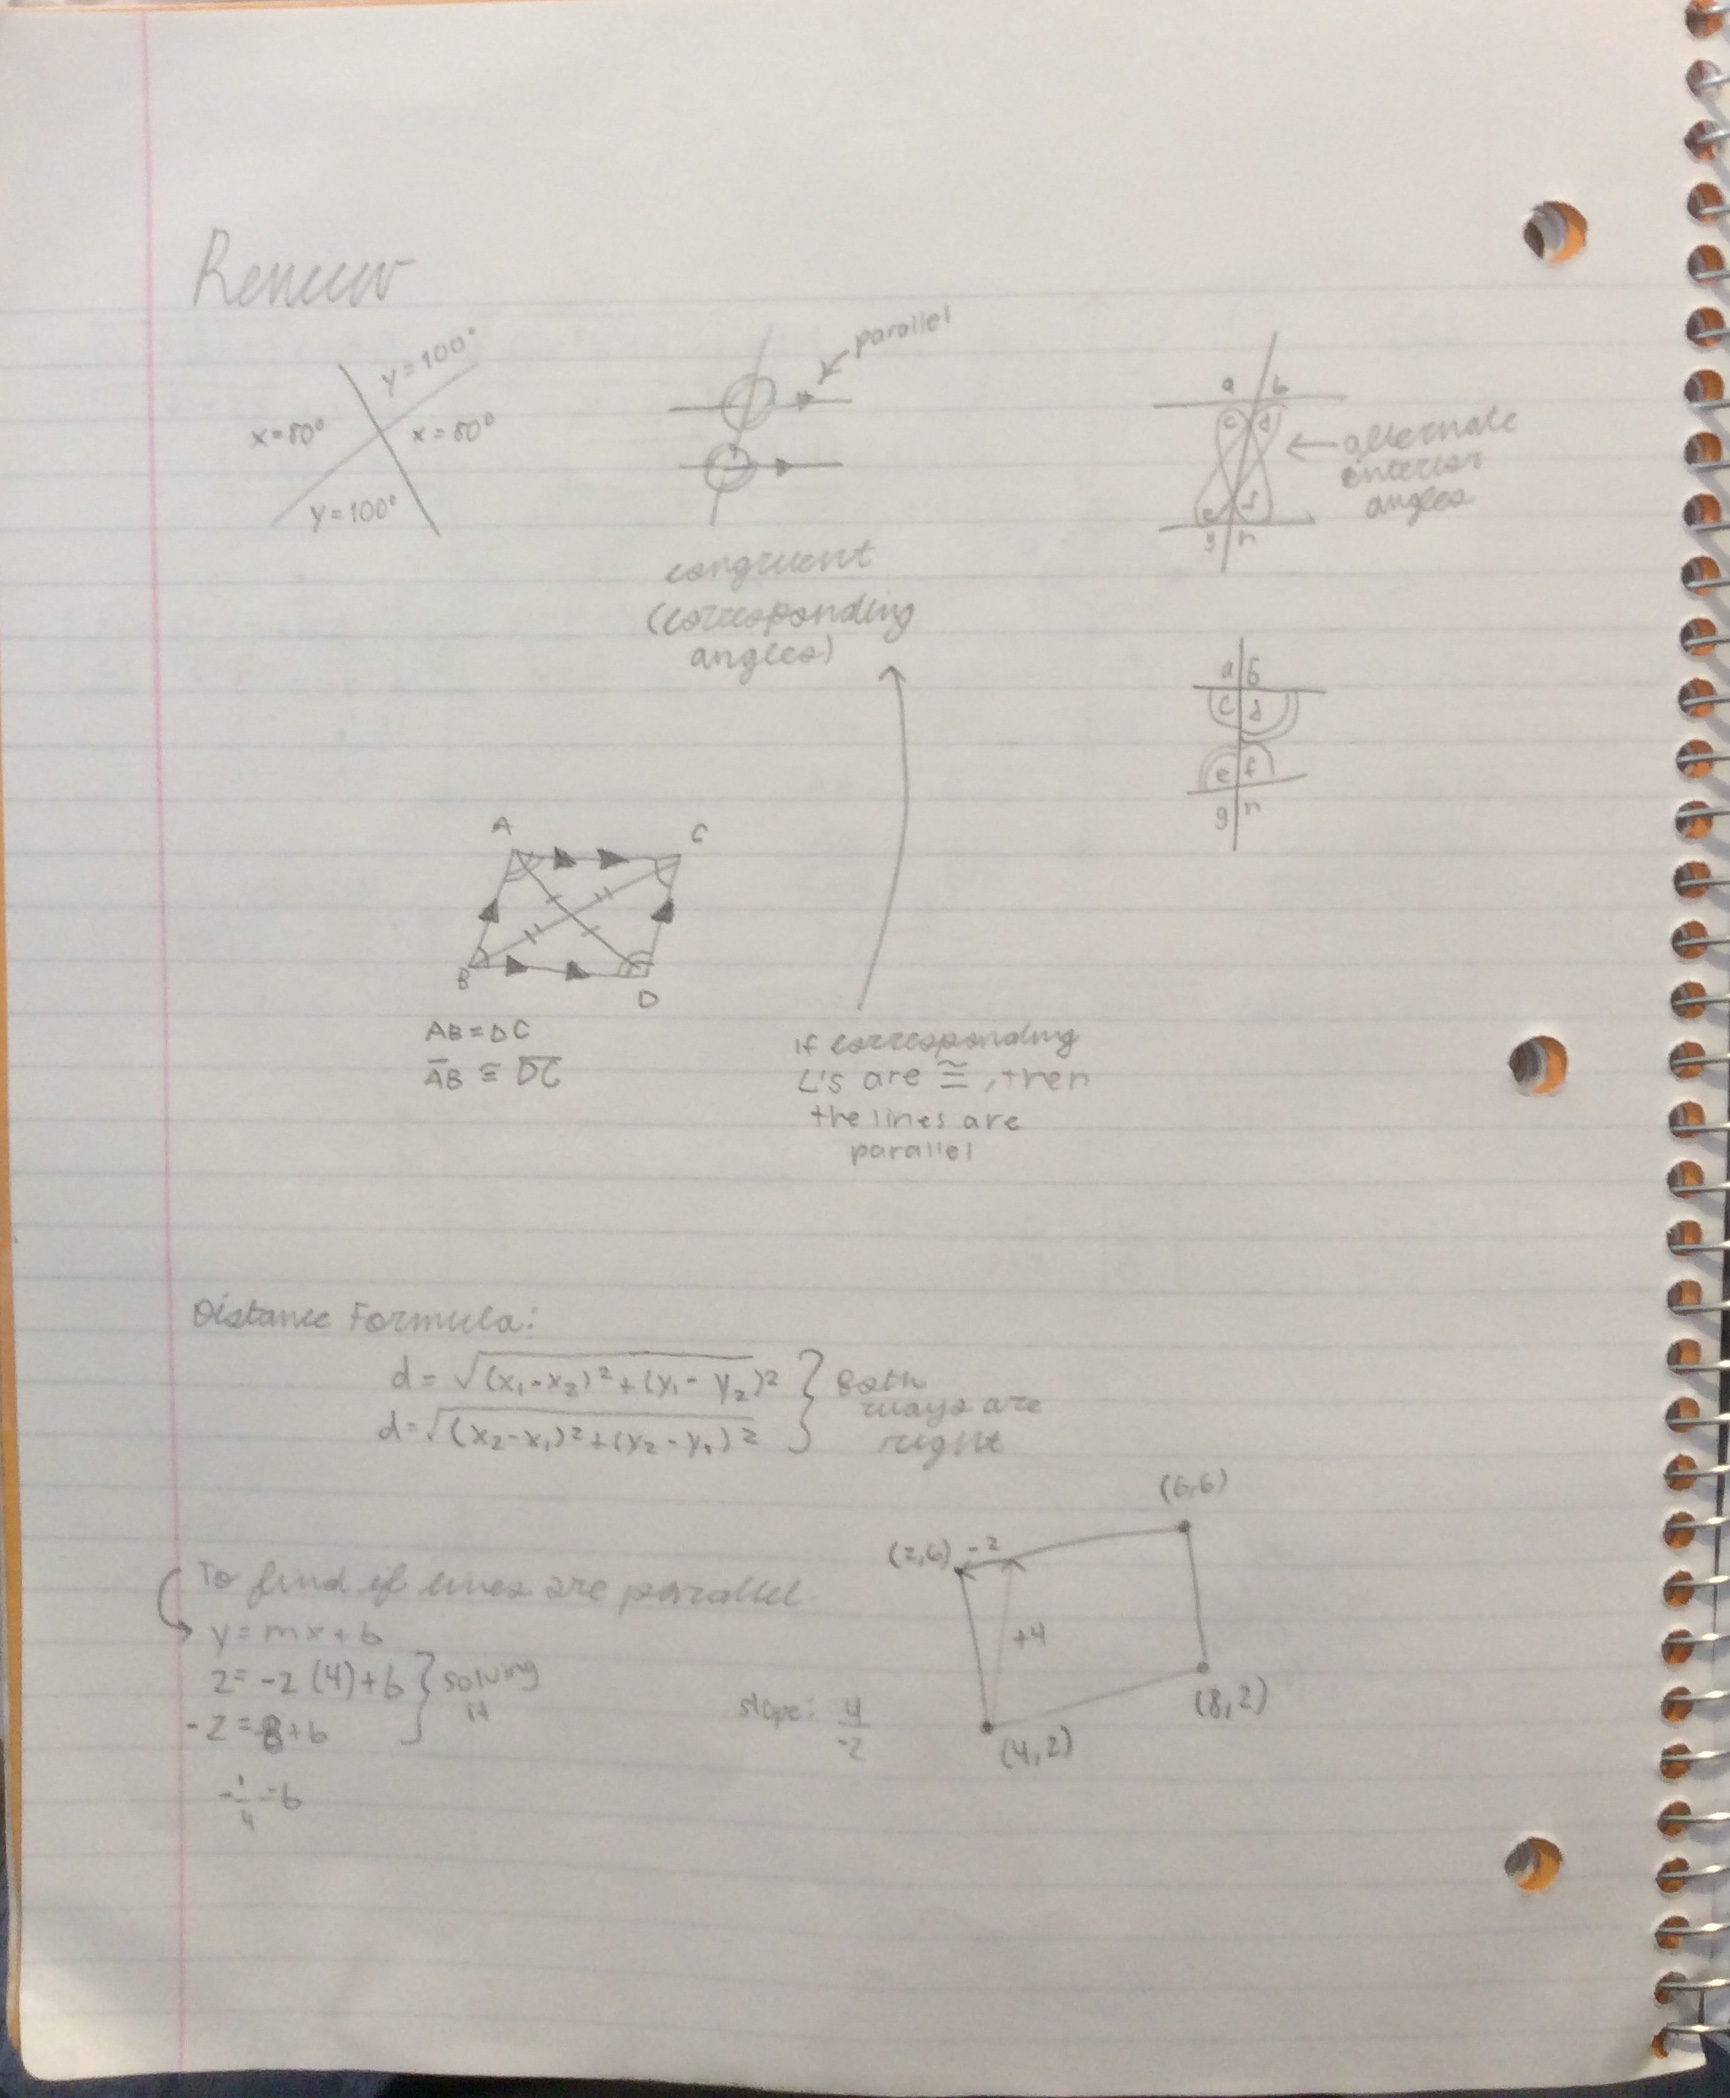 Review
y=100°
x=80°
x=80°
y=100°
parallel
congruent
(corresponding
angles)
a b
c d
e f
g h
alternate
interior
angles
a b
c d
e f
g h
A C
B D
AB=DC
AB ≅ DC
if corresponding
∠'s are ≅, then
the lines are
parallel
Distance Formula:
d = √(x₁-x₂)²+(y₁-y₂)²
d=√(x₂-x₁)²+(y₂-y₁)²
Both
ways are
right
To find if lines are parallel
y=mx+b
2=-2(4)+b
-2=-8+b
solving
it
-1/4=b
slope: 4/-2
(6,6)
(2,6) -2
+4
(8,2)
(4,2)